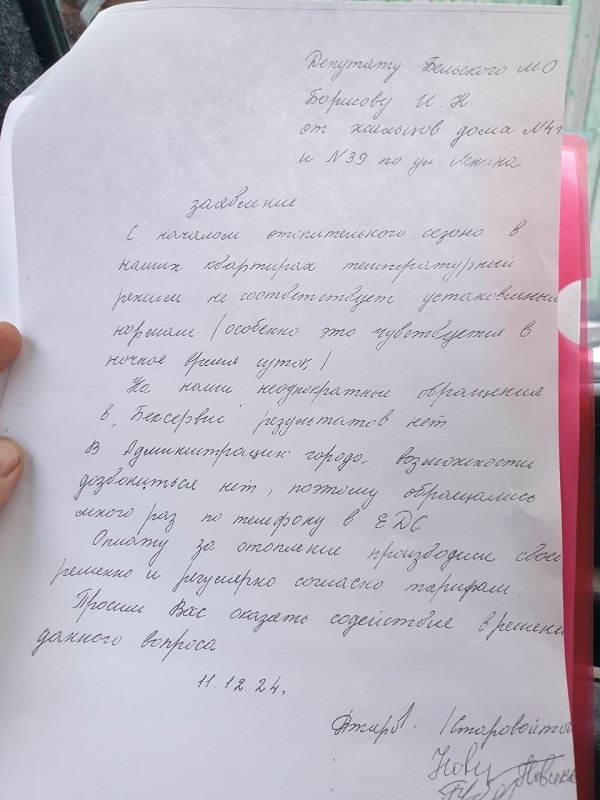 Депутату Бельского МО
Борисову И. Н
от жильцов дома №41
и №39 по ул Ленина
заявление.
С началом отопительного сезона в
наших квартирах температурный
режим не соответствует установленным
нормам (особенно это чувствуется в
ночное время суток)
На наши неоднократные обращения
в "Бексервис" результатов нет.
В Администрацию города возможности
дозвониться нет, поэтому обращались
много раз по телефону в ЕДС
Оплату за отопление производим свое
ременно и регулярно согласно тарифам.
Просим Вас оказать содействие в решени
данного вопроса
11.12.24.
/Старовойтов